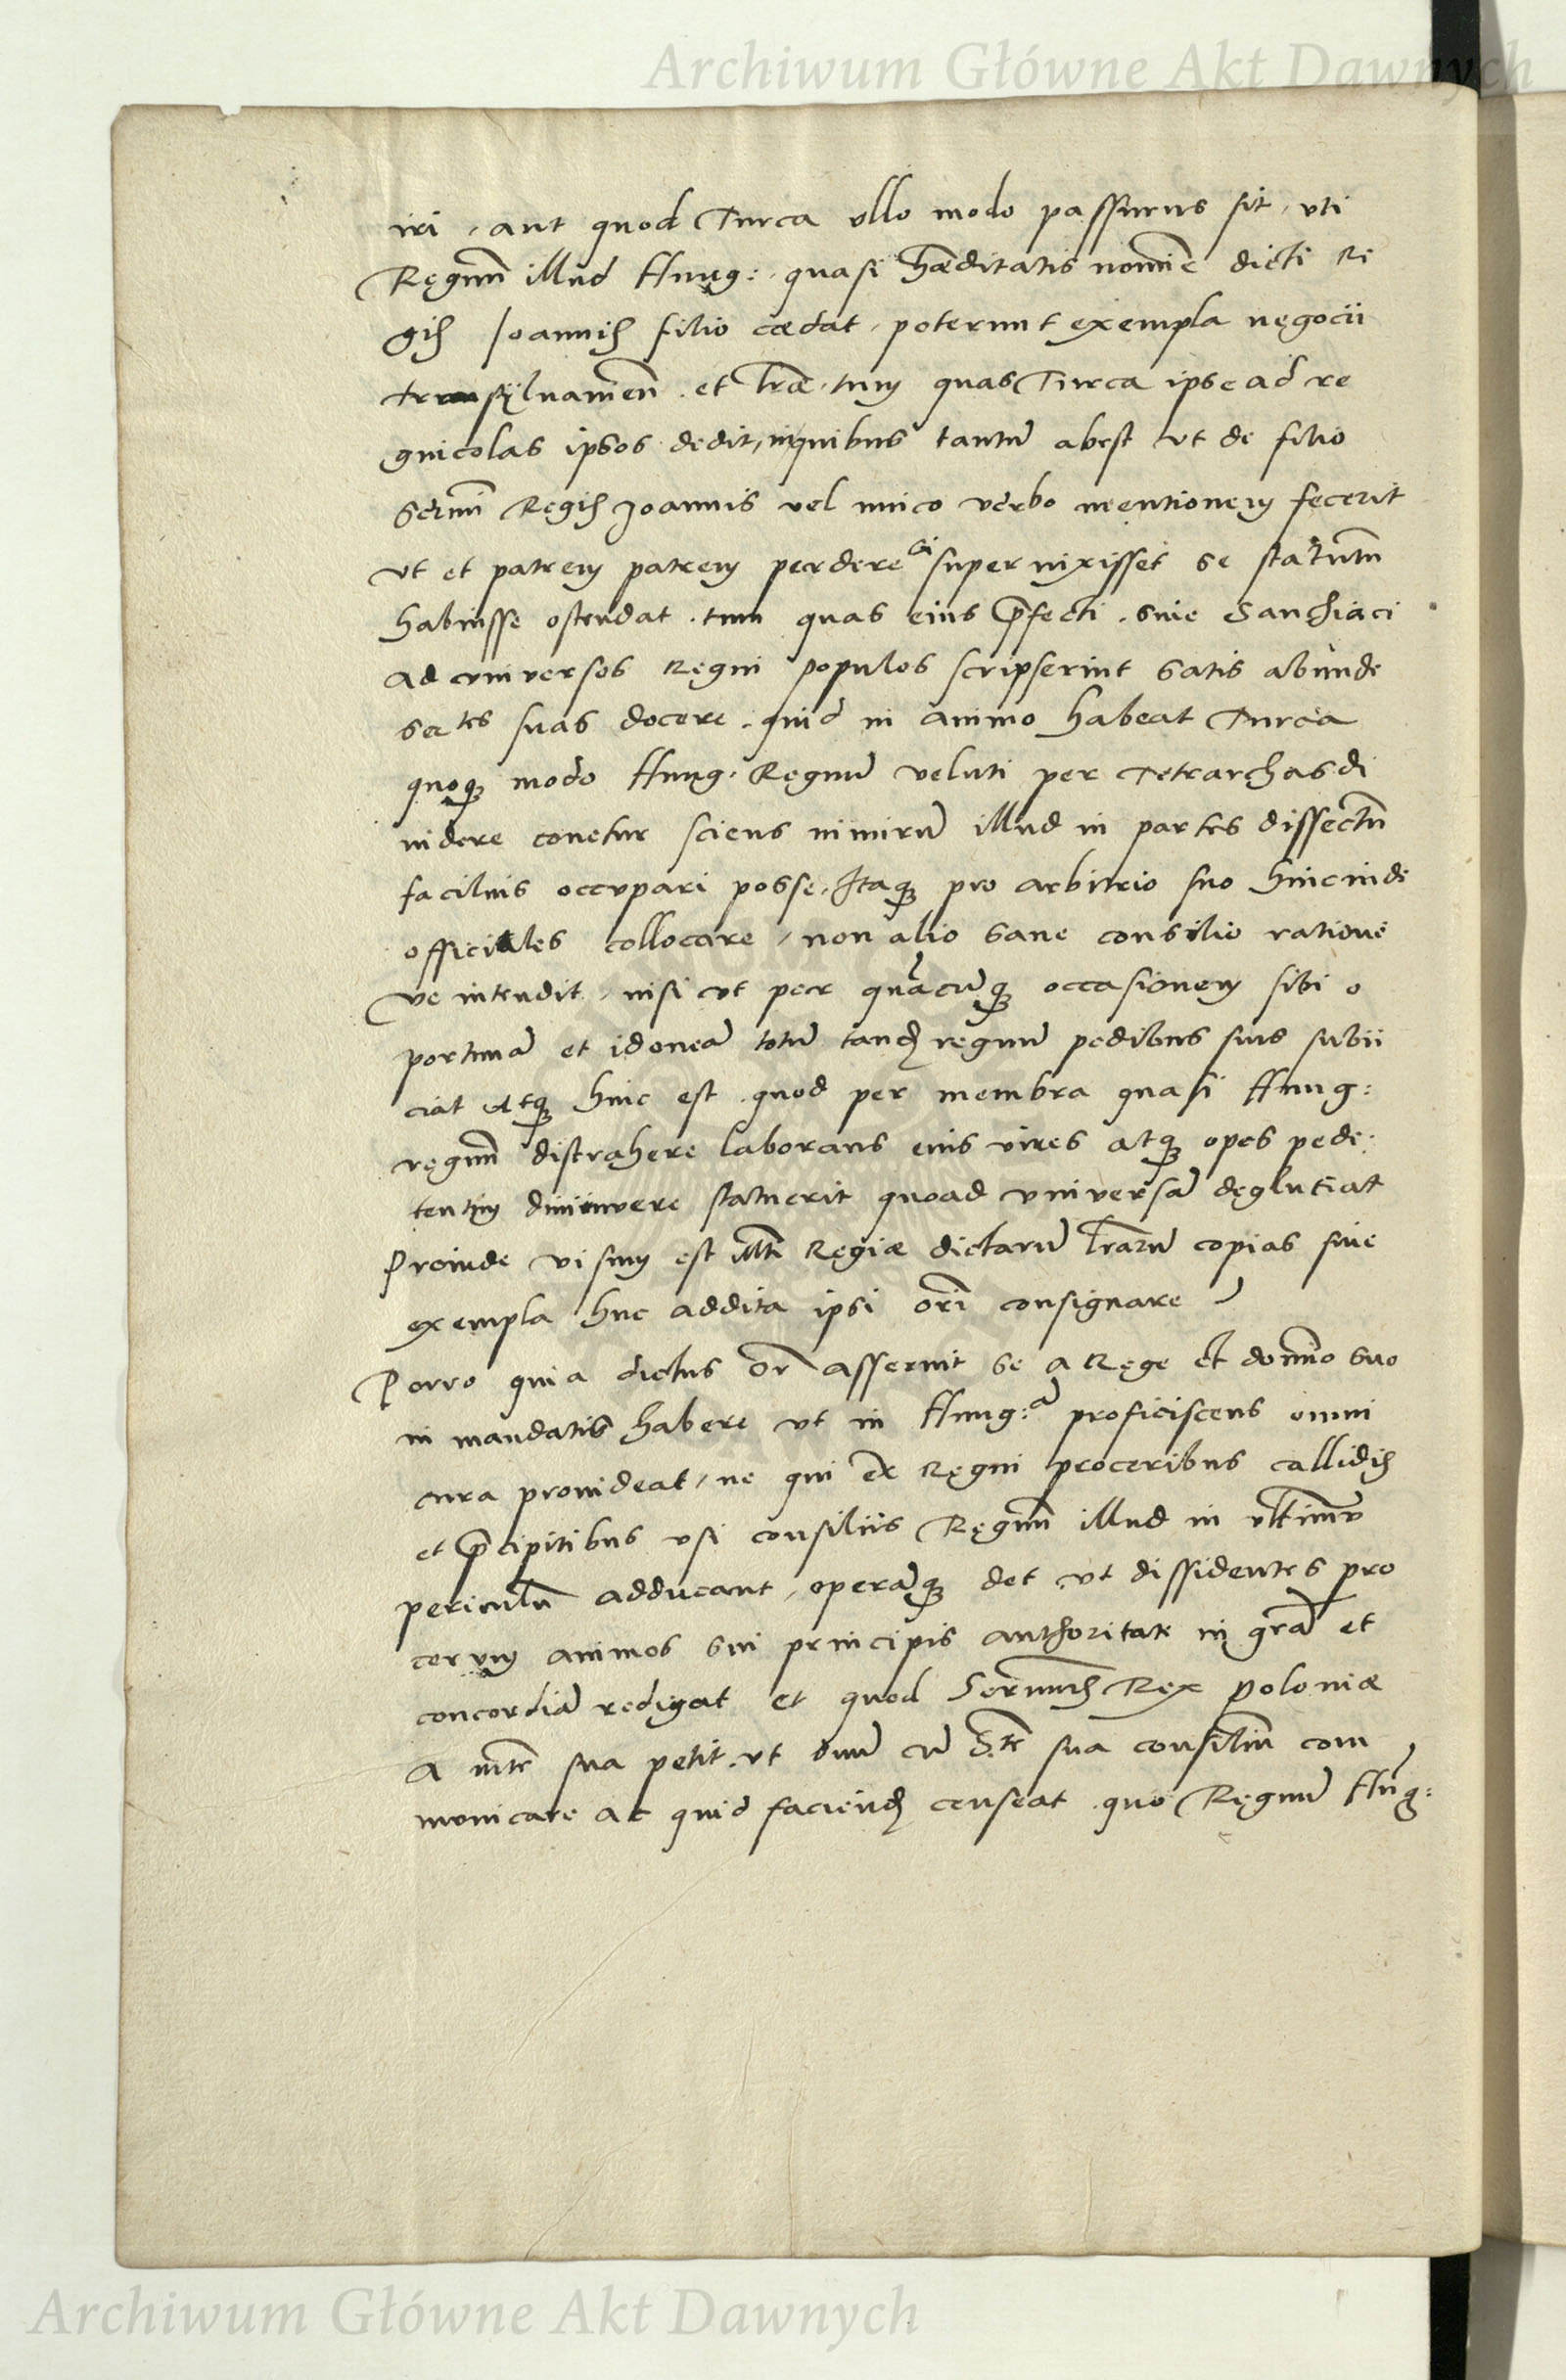 Archiwum Główne Akt Dawnych
iri, aut quod Turca ullo modo passurus sit, uti
Ręgnū illud Hung: quasi hæditatis nomīe dicti Re
gis Joannis filio cædat, poterunt exempla nęgocii
transylvanień. et lr̃æ, tum quas Turca ipse ad re
gnicolas ipsos dedit, in quibus tantū abest ut de filio
Serm̄i Ręgis Joannis vel unico verbo mentionem fecerit
ut et patrem patrem perdere si supervixisset se statutum
habuisse ostendat. tum quas eius p̄fecti, sive Sanchiaci
ad universos Ręgni populos scripserint satis abunde
Ser tes suas docere, quid in animo habeat Turca
quoq; modo Hung. Ręgnū veluti per Tetrarchas di
videre conetur sciens nimirū illud in partes dissectū
facilius occupari posse. Itaq; pro arbitrio suo hinc inde
officiales collocare, non alio sane consilio ratione
ve intendit, nisi ut per quācūq; occasionem sibi o
portunā et idoneā totū tandē regnū pedibus suis subii
ciat atq; hinc est quod per membra quasi Hung:
ręgnū distrahere laborans eius vires atq; opes pede:
tentim diminuere statuerit quoad universā dęglutiat
Proinde visum est Mti Ręgiæ dictarū lr̃arū copias sive
exempla huc addita ipsi ori consignare
Porro quia dictus or̄ asseruit se a Ręge et domīo suo
in mandatis habere ut in Hung:ā proficiscens omni
cura provideat, ne qui ex Ręgni proceribus callidis
et p̄cipitibus usi consiliis Ręgnū illud in ultimū
periculū adducant, operāq; det ut dissidentes pro
cerum animos sui principis authoritate in gr̄ā et
concordiā redigat et quod Sermus Rex Poloniæ
a mte sua petit, ut suū cū S.te sua consiliū com
municare ac quid faciend censeat quo Ręgnū Hūg:
Archiwum Główne Akt Dawnych